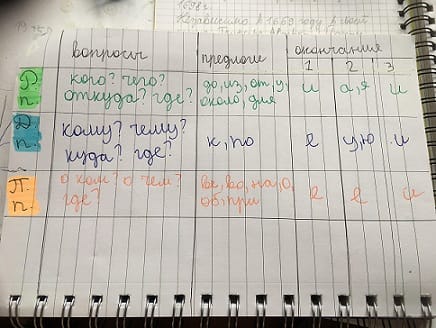 1698г.
вопросы предлоги окончания
1 2 3
Р. кого? чего? до, из, от, у, и а, я и
п. откуда? где? около, для
Д. кому? чему? к, по е у, ю и
п. куда? где?
П. о ком? о чём? во, на, о, е е и
п. где? об, при